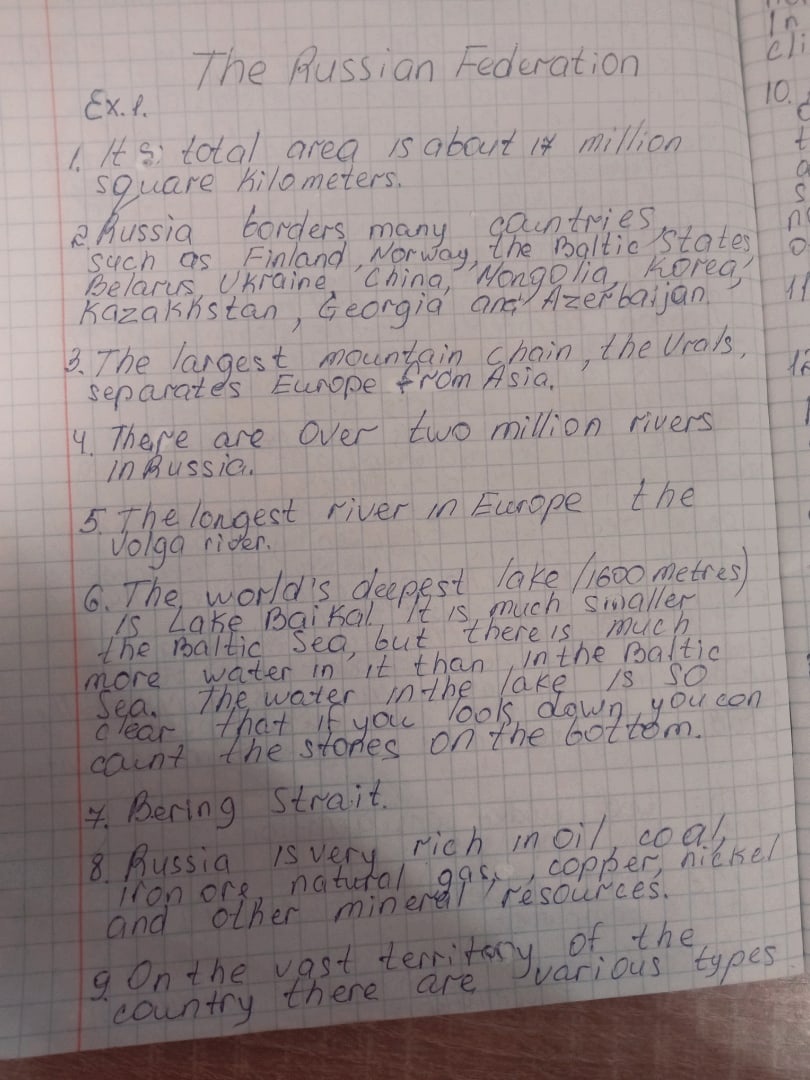 The Russian Federation
Ex. 1.
1. Its total area is about 17 million
square kilometers.
2. Russia borders many countries,
such as Finland, Norway, the Baltic States,
Belarus, Ukraine, China, Mongolia, Korea,
Kazakhstan, Georgia and Azerbaijan.
3. The largest mountain chain, the Urals,
separates Europe from Asia.
4. There are over two million rivers
in Russia.
5. The longest river in Europe the
Volga river.
6. The world's deepest lake (1600 metres)
is Lake Baikal. It is much smaller
the Baltic Sea, but there is much
more water in it than in the Baltic
Sea. The water in the lake is so
clear that if you look down you can
count the stones on the bottom.
7. Bering Strait.
8. Russia is very rich in oil, coal,
iron ore, natural gas, copper, nickel
and other mineral resources.
9. On the vast territory of the
country there are various types
In
cli
10.
11
12